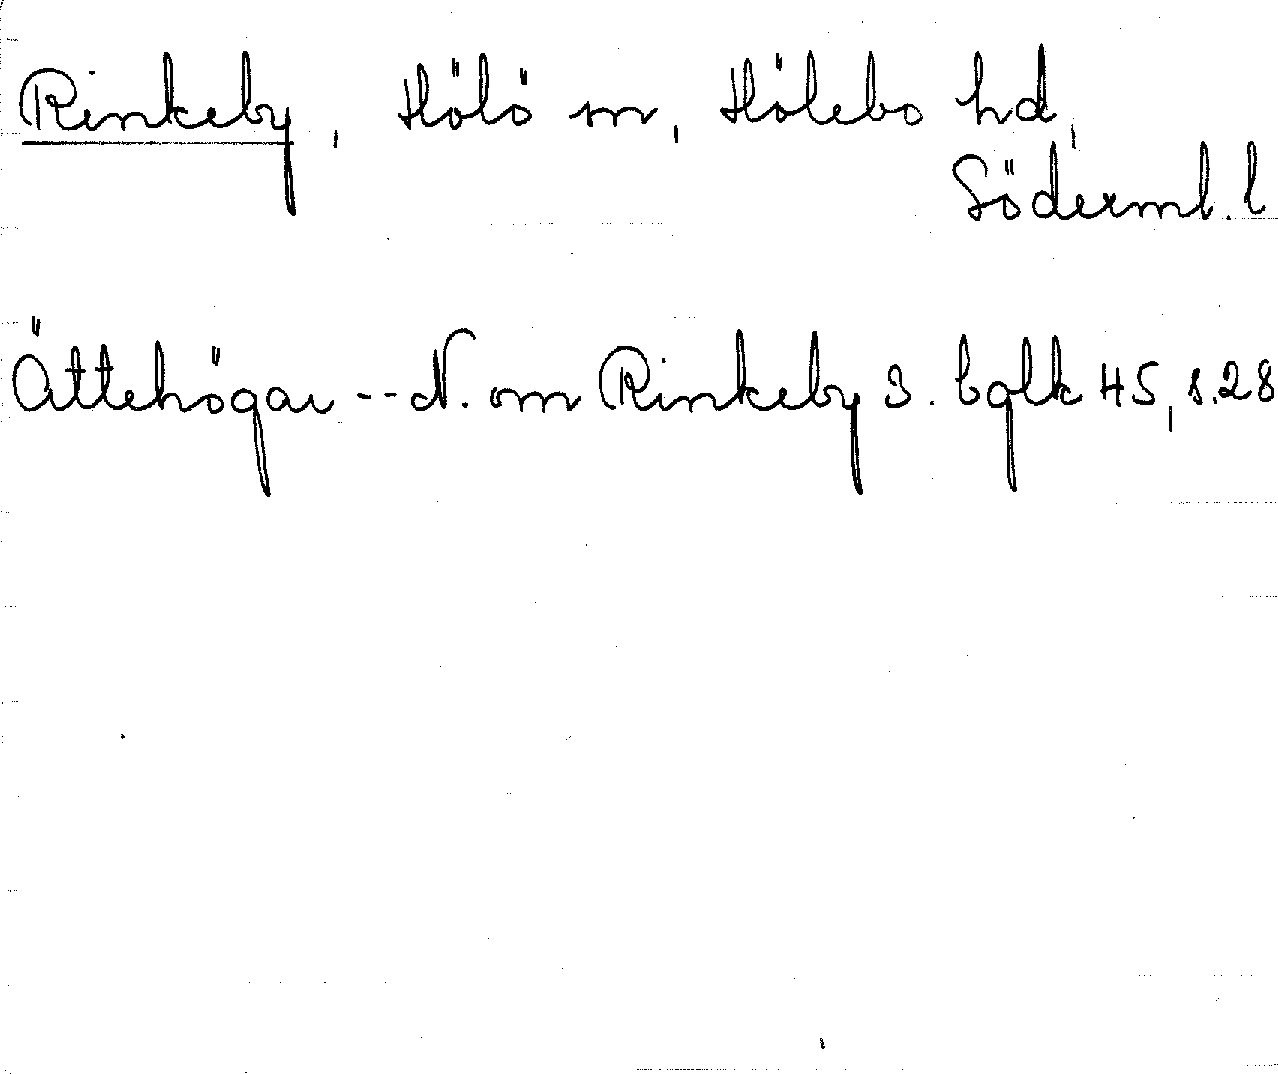 Rinkeby, Hölö sn, Hölebo hd,
Söderml. l
Ättehögar -- N. om Rinkeby 3. bglk 45, s. 28